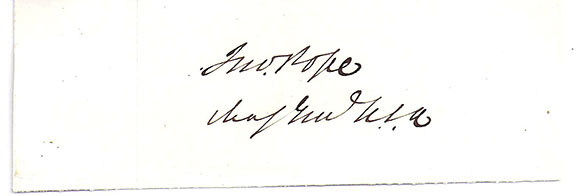 Jno. Pope
Maj Genl U.S.A